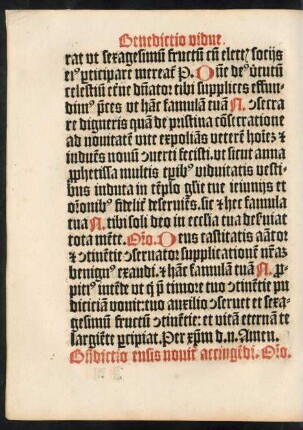 Benedictio vidue.
rat vt sexagesimũ fructũ cũ elect; socijs
ei⁹ ꝑticipare mereat᷑ P. Oñe de⁹ v̓tutũ
celestiũ eterne dñator tibi supplices effun-
dim⁹ p̃ces vt hãc famulã tuã N. ↄsecra
re digneris quã de pristina ↄ̃secratione
ad nouitatẽ vite expoliãs veterẽ hoiez &
induẽs nouũ ↄuerti fecisti. vt sicut anna
ꝓphetissa multis tꝑib⁹ viduitatis vesti-
bus induta in tẽplo glꝛie tue ieiunijs et
orõnib⁹ fideliť deseruiẽs. sic & hec famula
tua N. tibi soli deo in ecclia tua deseruiat
tota mẽte. Orõ. Deus castitatis amãtor
& ↄtinẽtie ↄseruator supplicationẽ nr̃az
benign⁹ exaudi. & hãc famulã tuã N. ꝓ-
piti⁹ intẽde vt q̃ p̃ timore tuo ↄtinẽtie pu
diciciã vouit: tuo auxilio ↄseruet et sexa-
gesimũ fructũ ↄtinẽtie: et vitã eternã te
largiẽte ꝑcipiat. Per xp̃m d. n. Amen.
Bñdictio ensis nouit᷑ accingẽdi. Orõ.